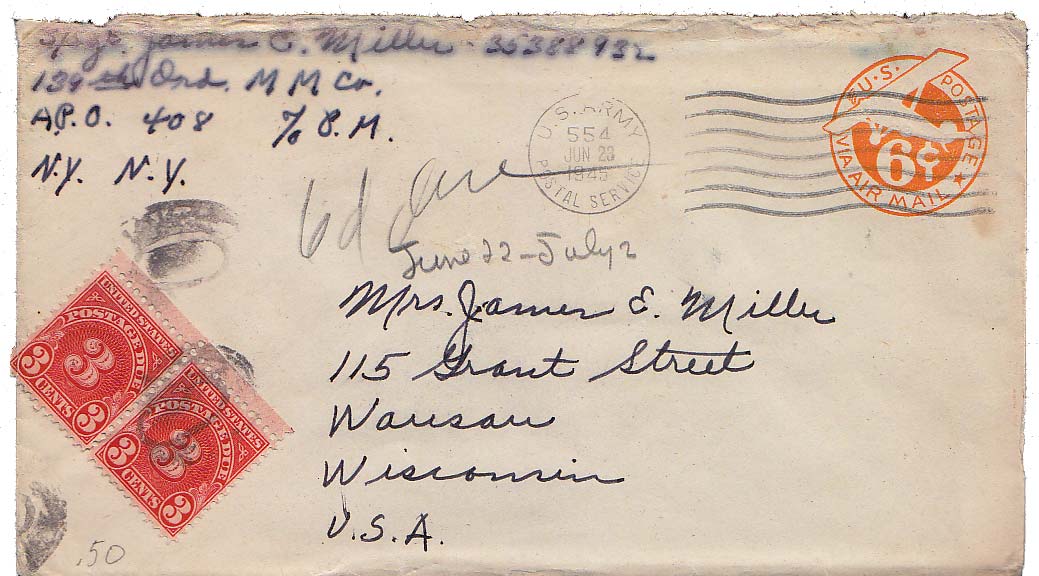 Sgt. James E. Miller - 35388932
139th Ord. M M Co.
A.P.O. 408 % P.M.
N.Y. N.Y.
U.S. ARMY
554
JUN 23
1945
POSTAL SERVICE
U.S. POSTAGE
6¢
VIA AIR MAIL
6¢ due
June 22-July 2
Mrs. James E. Miller
115 Grant Street
Wausau
Wisconsin
U.S.A.
UNITED STATES
POSTAGE DUE
3
3 CENTS 3
UNITED STATES
POSTAGE DUE
3
3 CENTS 3
.50